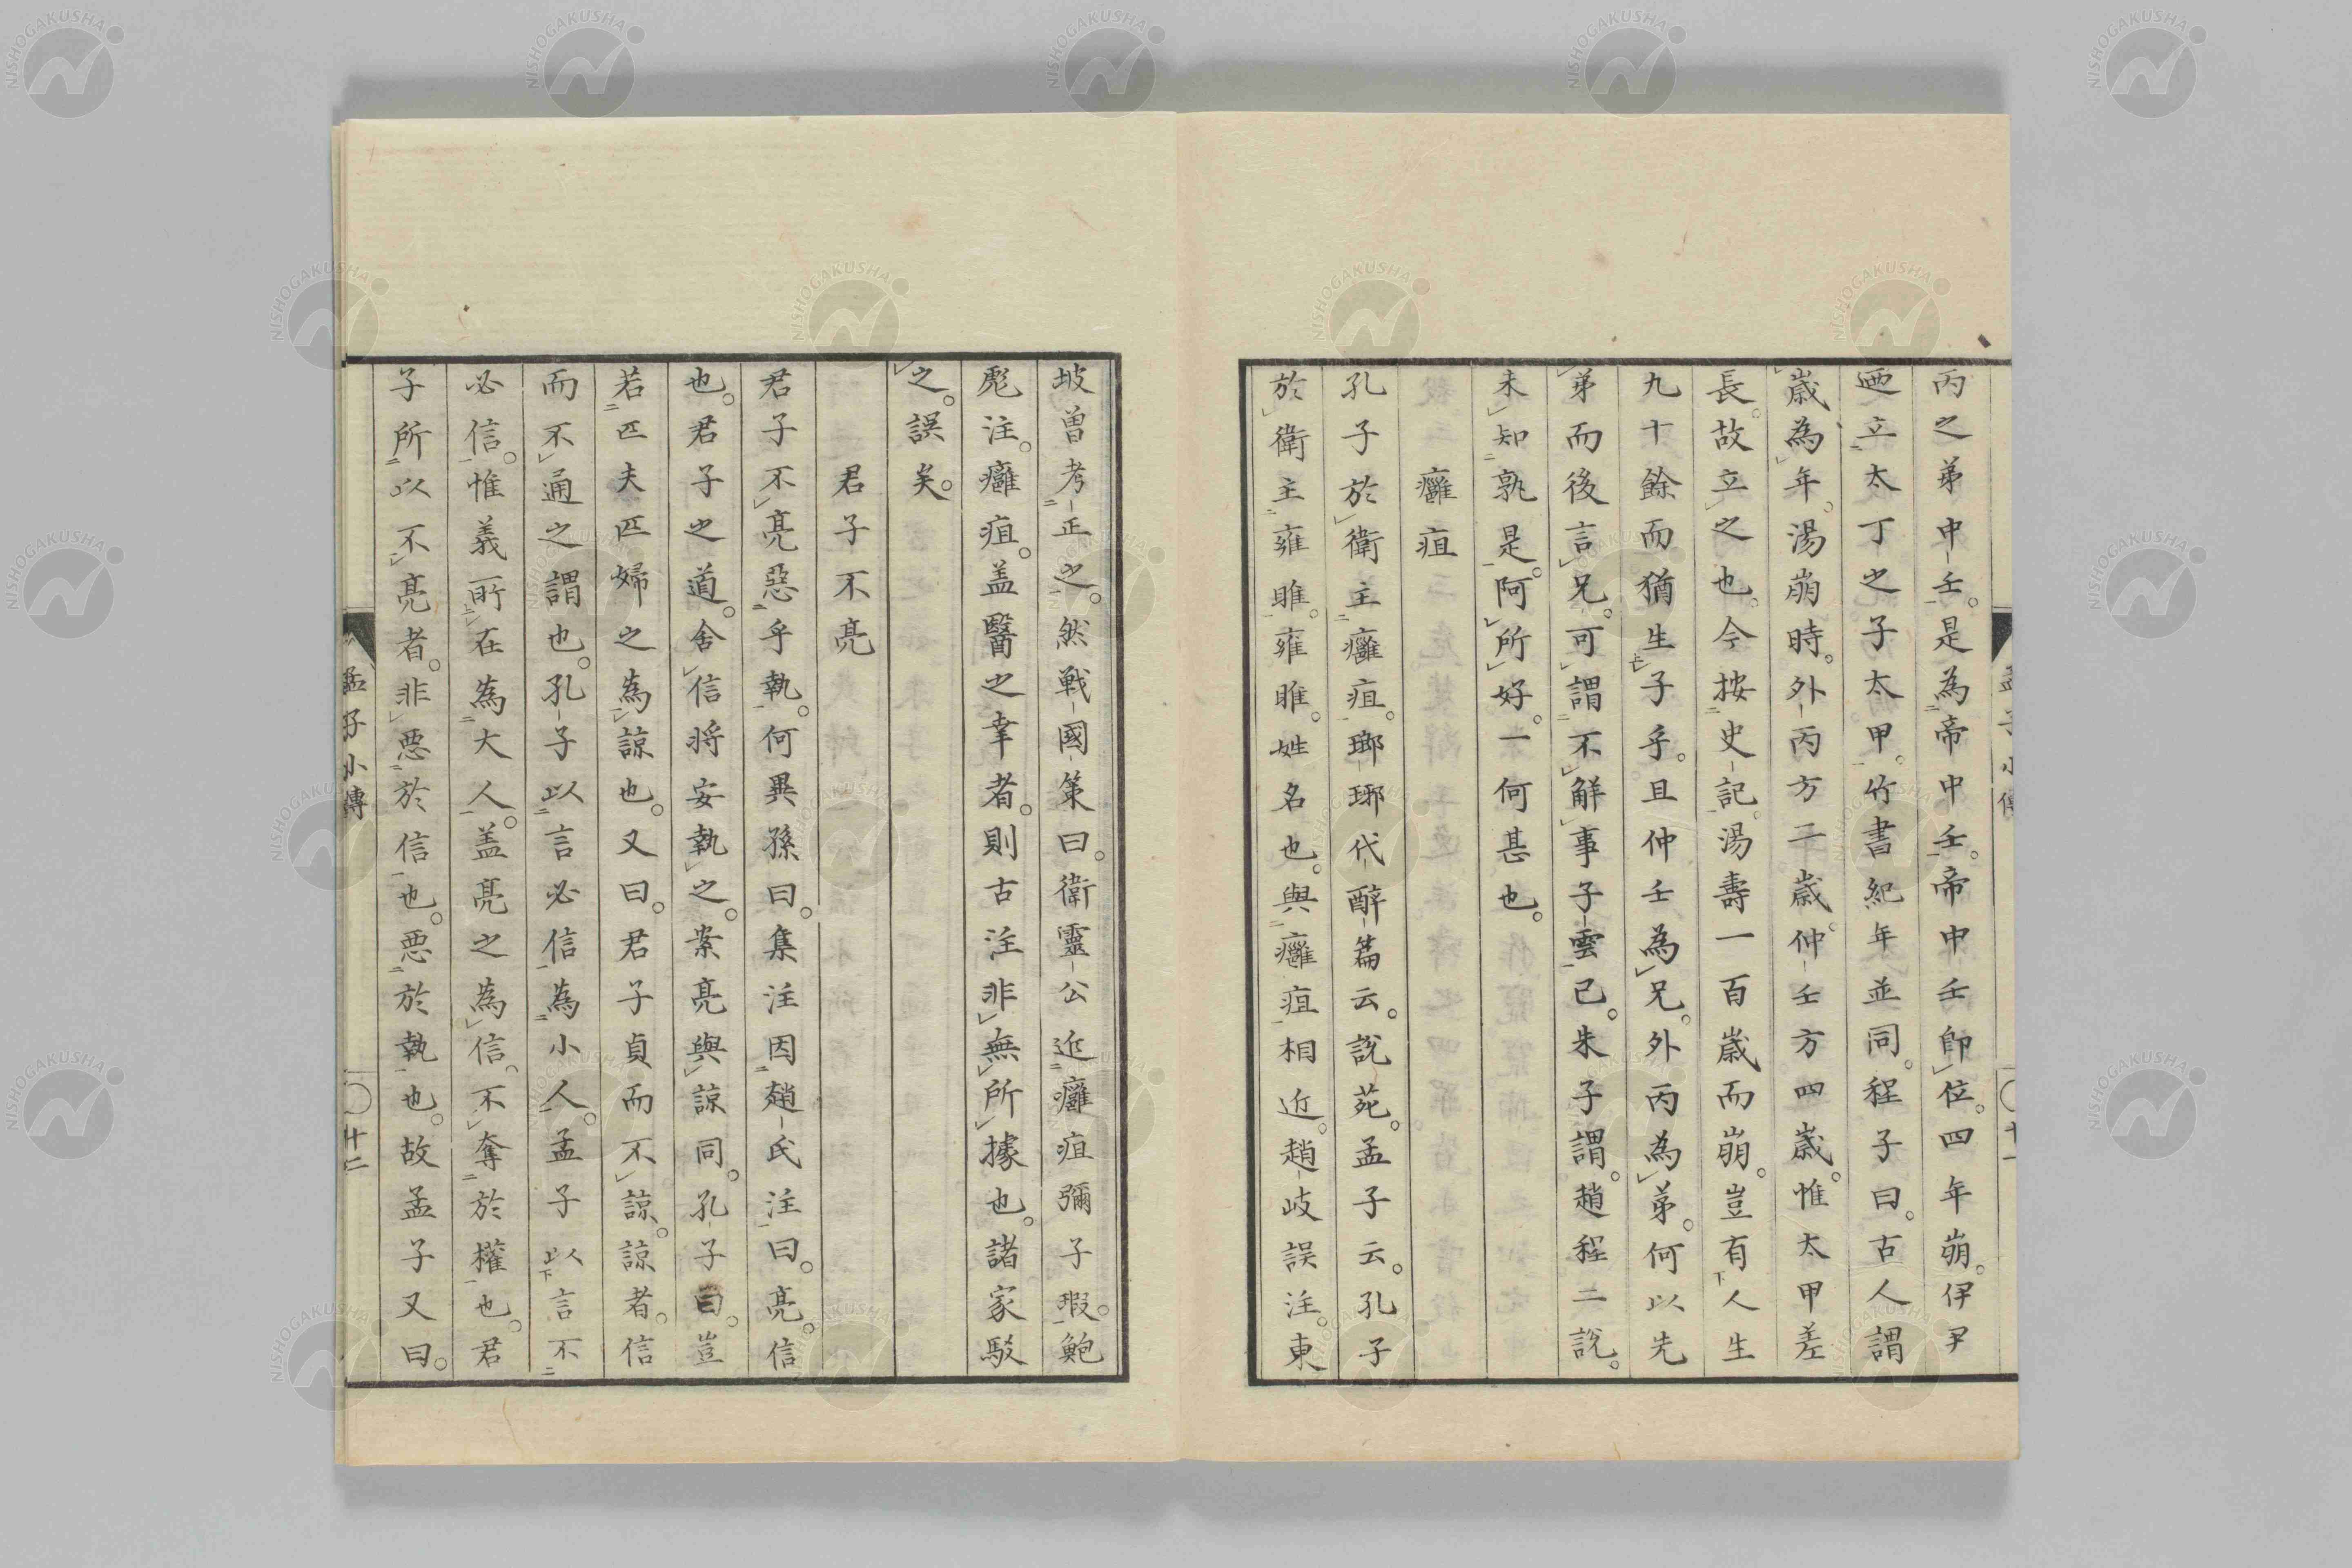 丙之弟中壬。是為帝中壬。帝中壬即位。四年崩。伊尹
迺立太丁之子太甲。竹書紀年並同。程子曰。古人謂
歳為年。湯崩時。外丙方二歳。仲壬方四歳。惟太甲差
長。故立之也。今按史記。湯壽一百歳而崩。豈有人生
九十餘而猶生子乎。且仲壬為兄。外丙為弟。何以先
弟而後言兄。可謂不解事子雲已。朱子謂。趙程二說。
未知孰是。阿所好。一何甚也。
癰疽
孔子於衛主癰疽。瑯琊代醉篇云。說苑。孟子云。孔子
於衛主雍雎。雍雎。姓名也。與癰疽相近。趙岐誤注。東
孟子小傳
〇十一
坡曽考正之。然戰國策曰。衛靈公近癰疽彌子瑕。鮑
彪注。癰疽。盖醫之幸者。則古注非無所據也。諸家駁
之。誤矣。
君子不亮
君子不亮惡乎執。何異孫曰。集注因趙氏注曰。亮。信
也。君子之道。舍信将安執之。案亮與諒同。孔子曰。豈
若匹夫匹婦之為諒也。又曰。君子貞而不諒。諒者。信
而不通之謂也。孔子以言必信為小人。孟子以言不
必信。惟義所在為大人。盖亮之為信。不奪於權也。君
子所以不亮者。非悪於信也。悪於執也。故孟子又曰。
孟子小傳
〇十二
NISHOGAKUSHA